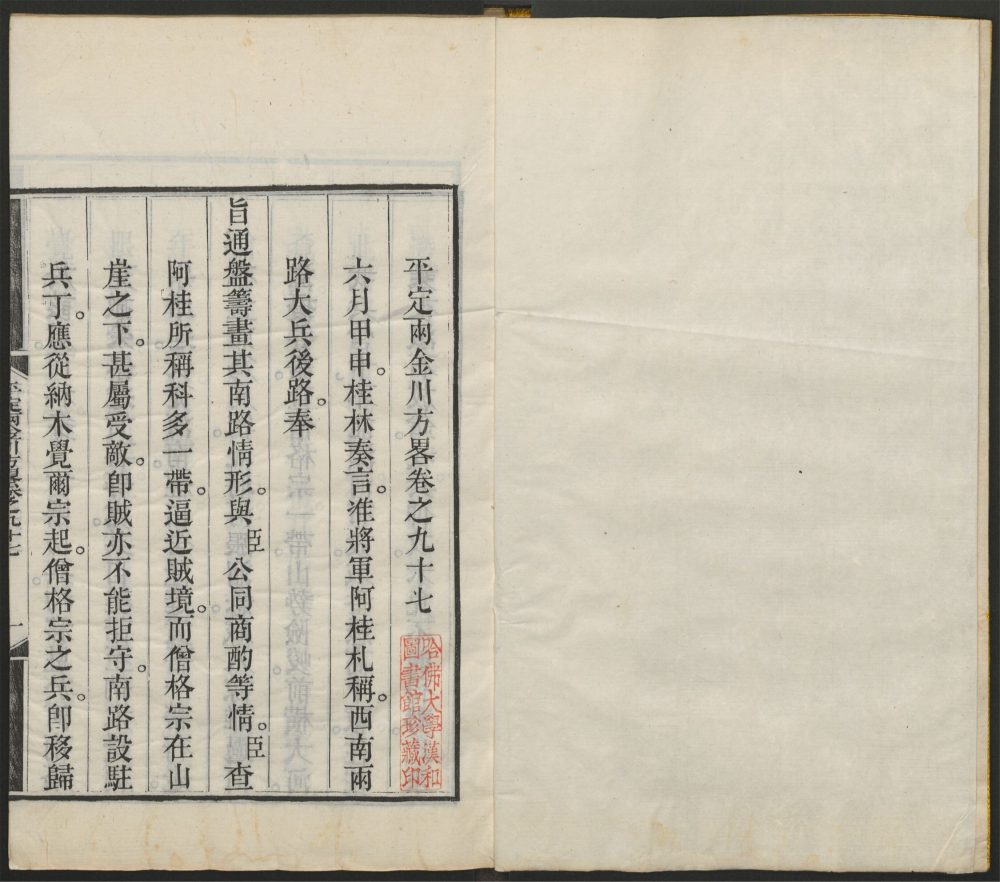 平定兩金川方畧卷之九十七
哈佛大學漢和
圖書館珍藏印
六月甲申。桂林奏言。准將軍阿桂札稱。西南兩
路大兵後路。奉
旨通盤籌畫其南路情形。與臣公同商酌等情。臣查
阿桂所稱科多一帶。逼近賊境。而僧格宗在山
崖之下。甚屬受敵。卽賊亦不能拒守。南路設駐
兵丁。應從納木覺爾宗起。僧格宗之兵。卽移歸
平定兩金川方畧卷之九十七
一